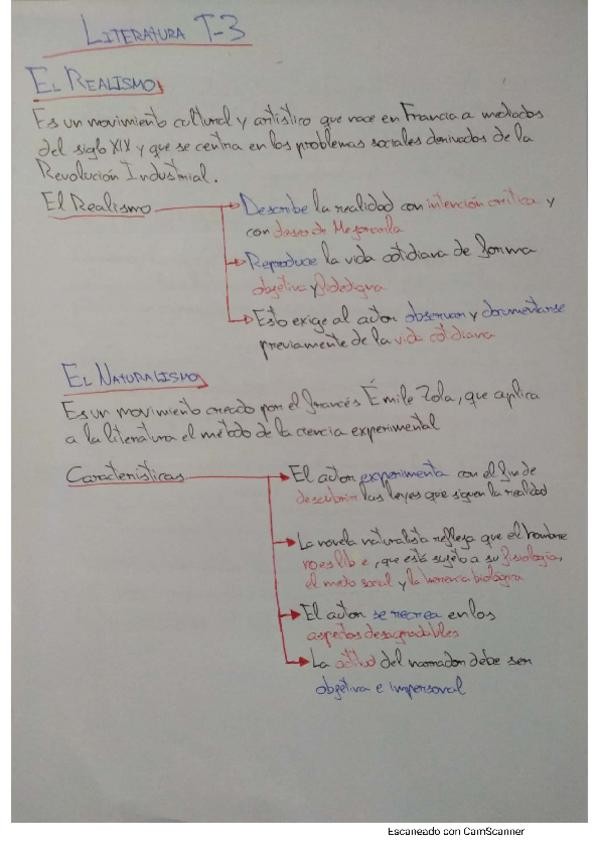 LITERATURA T-3
EL REALISMO
Es un movimiento cultural y artístico que nace en Francia a mediados
del siglo XIX y que se centra en los problemas sociales derivados de la
Revolución Industrial.
El Realismo
Describe la realidad con intención crítica y
con deseo de Mejorarla
Reproduce la vida cotidiana de forma
objetiva y fidedigna
Esto exige al autor observar y documentarse
previamente de la vida cotidiana
EL NATURALISMO
Es un movimiento creado por el francés Émile Zola, que aplica
a la literatura el método de la ciencia experimental
Características
El autor experimenta con el fin de
descubrir las leyes que siguen la realidad
La novela naturalista refleja que el hombre
no es libre, que está sujeto a su fisiología,
el medio social y la herencia biológica
El autor se recrea en los
aspectos desagradables
La actitud del narrador debe ser
objetiva e impersonal
Escaneado con CamScanner